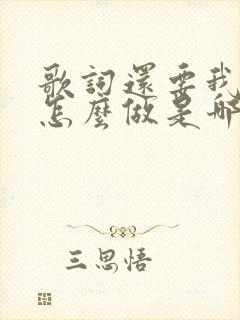 歌詞還要我
怎麼做是哪
三思悟